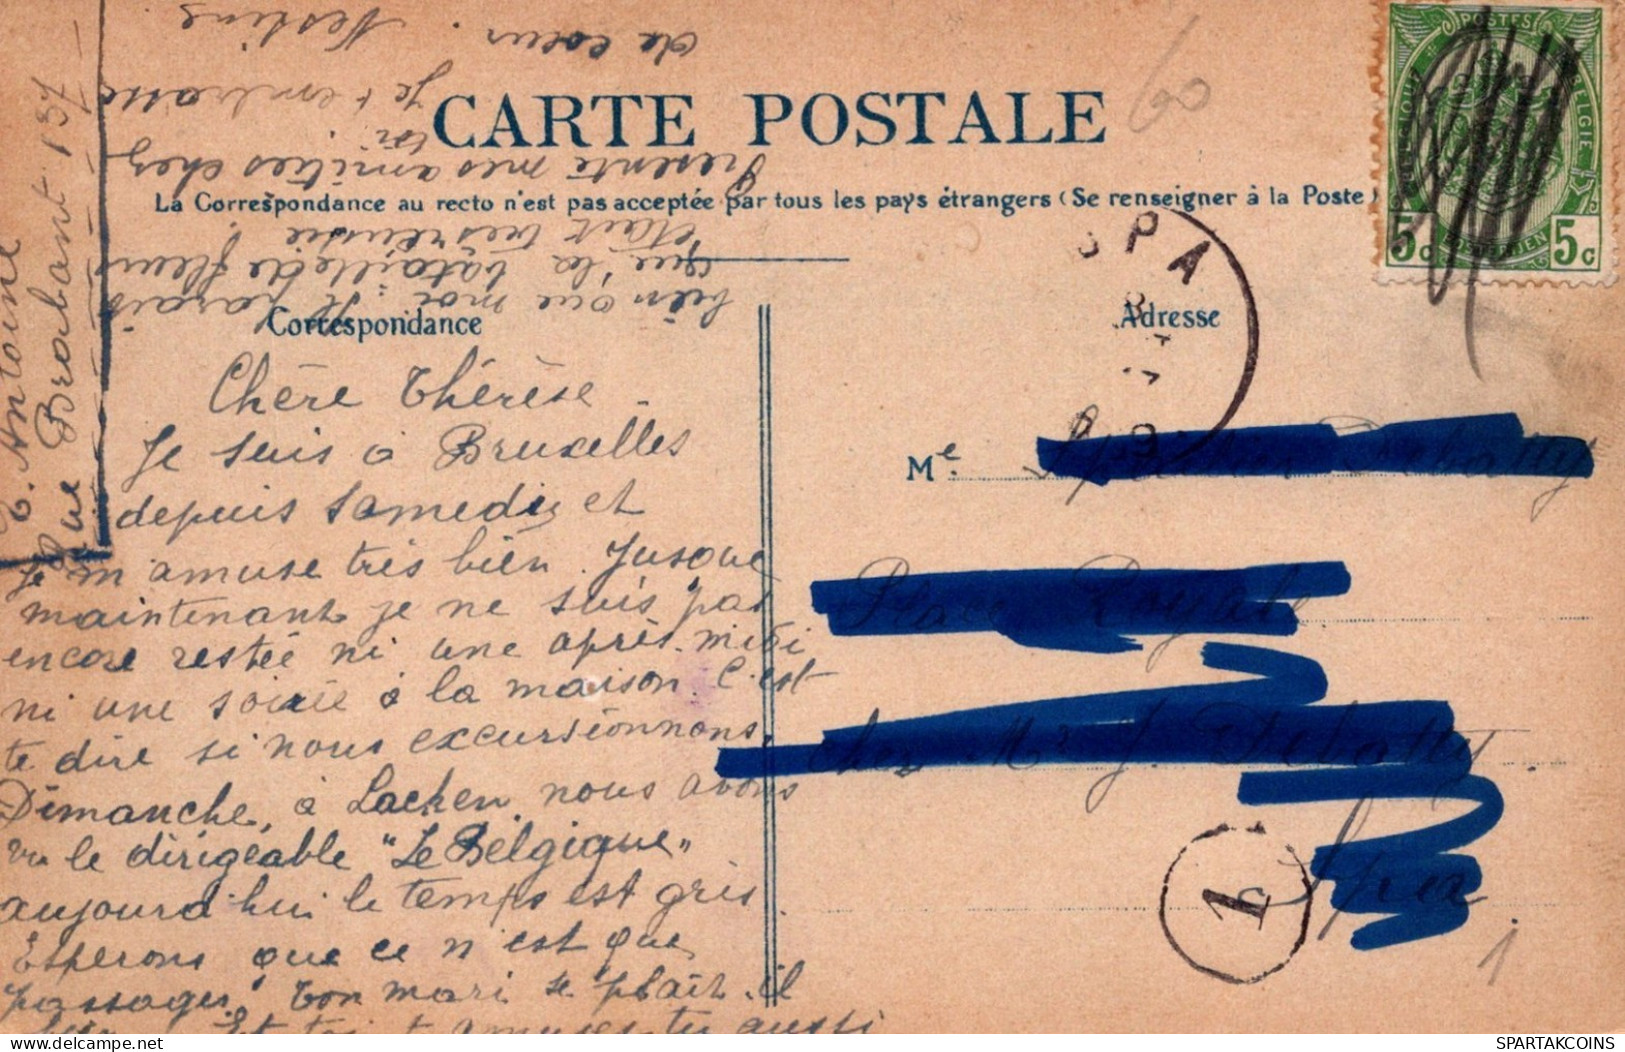 CARTE POSTALE
La Correspondance au recto n'est pas acceptée par tous les pays étrangers (Se renseigner à la Poste)
Correspondance
Adresse
POSTES
BELGIQUE
BELGIE
POSTERIJEN
5c
5c
SPA
60
Chère Thérèse.
Je suis à Bruxelles
depuis samedi et
je m'amuse très bien. Jusque
maintenant je ne suis pas
encore restée ni une après-midi
ni une soirée à la maison. C'est
te dire si nous excursionnons.
Dimanche, à Lacken, nous avons
vu le dirigeable "Le Belgique"
aujourd'hui le temps est gris.
Espérons que ce n'est que
passager. Ton mari se plaît-il
Et toi t'amuses-tu aussi
bien que moi. Il paraît
que la bataille de fleurs
était très réussie
Présente mes amitiés chez
toi.
Je t'embrasse
de coeur.
T. Antoine
Rue Brabant 137
Me.
Place Royale
chez Mr J. Debatty
Spa
1
1
SPARTAKCOINS
delcampe.net
SPARTAKCOINS.COM